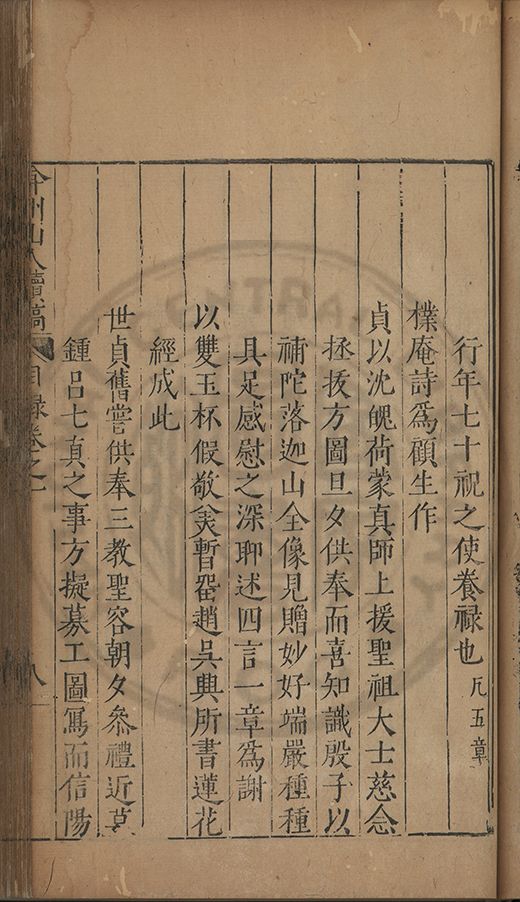 行年七十祝之使養禄也凡五章
樸庵詩爲顧生作
貞以沈魄荷蒙真師上援聖祖大士慈念
拯拔方圖旦夕供奉而喜知識殷子以
補陀落迦山全像見贈妙好端嚴種種
具足感慰之深聊述四言一章爲謝
以雙玉杯假敬美暫畱趙吳興所書蓮花
經成此
世貞舊嘗供奉三教聖容朝夕叅禮近莫
鍾吕七真之事方擬募工圖寫而信陽
弇州山人續稿 目録卷之一 八